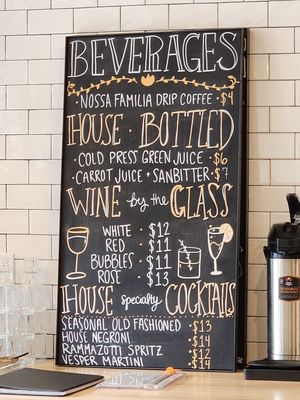 BEVERAGES
NOSSA FAMILIA DRIP COFFEE • $4
HOUSE • BOTTLED
COLD PRESS GREEN JUICE • $6
CARROT JUICE + SANBITTER • $7
WINE by the GLASS
WHITE • $12
RED • $11
BUBBLES • $11
ROSE • $13
HOUSE specialty COCKTAILS
SEASONAL OLD FASHIONED • $13
HOUSE NEGRONI • $14
RAMMAZOTTI SPRITZ • $12
VESPER MARTINI • $14